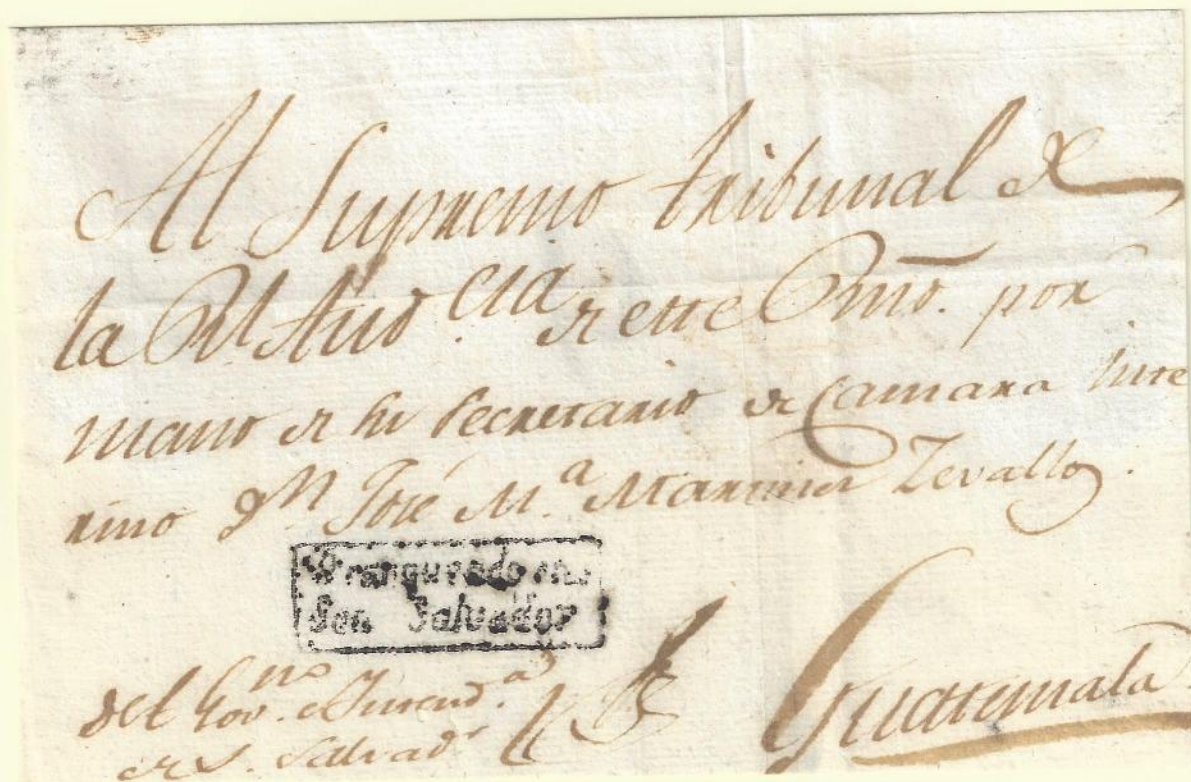 Al Supremo tribunal de
la Rl. Aud.cia de este Rno. por
mano de su Secretario de Camara inte
rino Dn José M.a Martinez Zevallos.
Franqueado en
San Salvador
del Gov.no e Intend.a
de S. Salvad.r
Guatemala